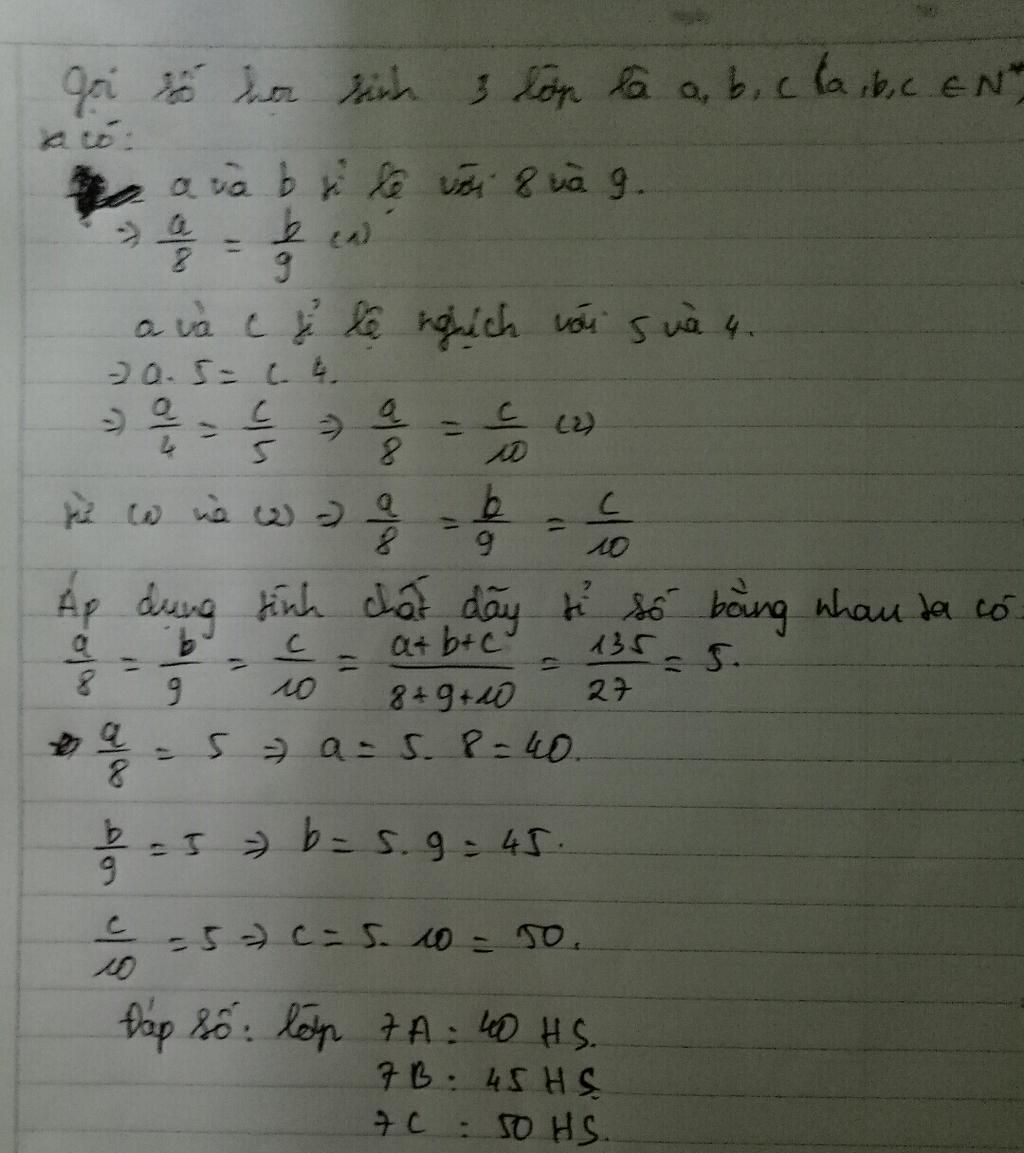 Gọi số học sinh 3 lớp là a, b, c (a, b, c ∈ N*)
ta có:
a và b tỉ lệ với 8 và 9.
⇒ a/8 = b/9 (1)
a và c tỉ lệ nghịch với 5 và 4.
⇒ a. 5 = c. 4.
⇒ a/4 = c/5 ⇒ a/8 = c/10 (2)
từ (1) và (2) ⇒ a/8 = b/9 = c/10
Áp dụng tính chất dãy tỉ số bằng nhau ta có
a/8 = b/9 = c/10 = (a+b+c)/(8+9+10) = 135/27 = 5.
a/8 = 5 ⇒ a = 5. 8 = 40.
b/9 = 5 ⇒ b = 5. 9 = 45.
c/10 = 5 ⇒ c = 5. 10 = 50.
Đáp số: lớp 7A: 40 HS.
7B: 45 HS
7C : 50 HS.